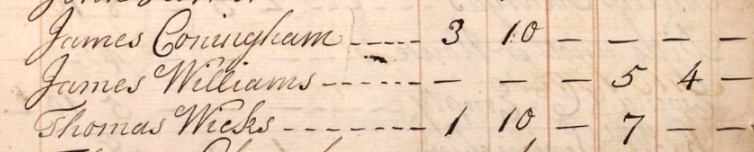 James Coningham ---- 3 10 — — — —
James Williams ------ — — — 5 4 —
Thomas Wicks -------- 1 10 — 7 — —